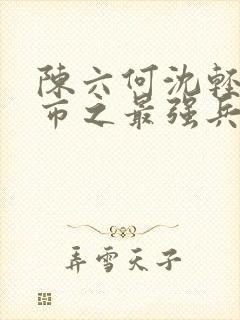 陳六何沈輕
市之最强兵
弄雪天子